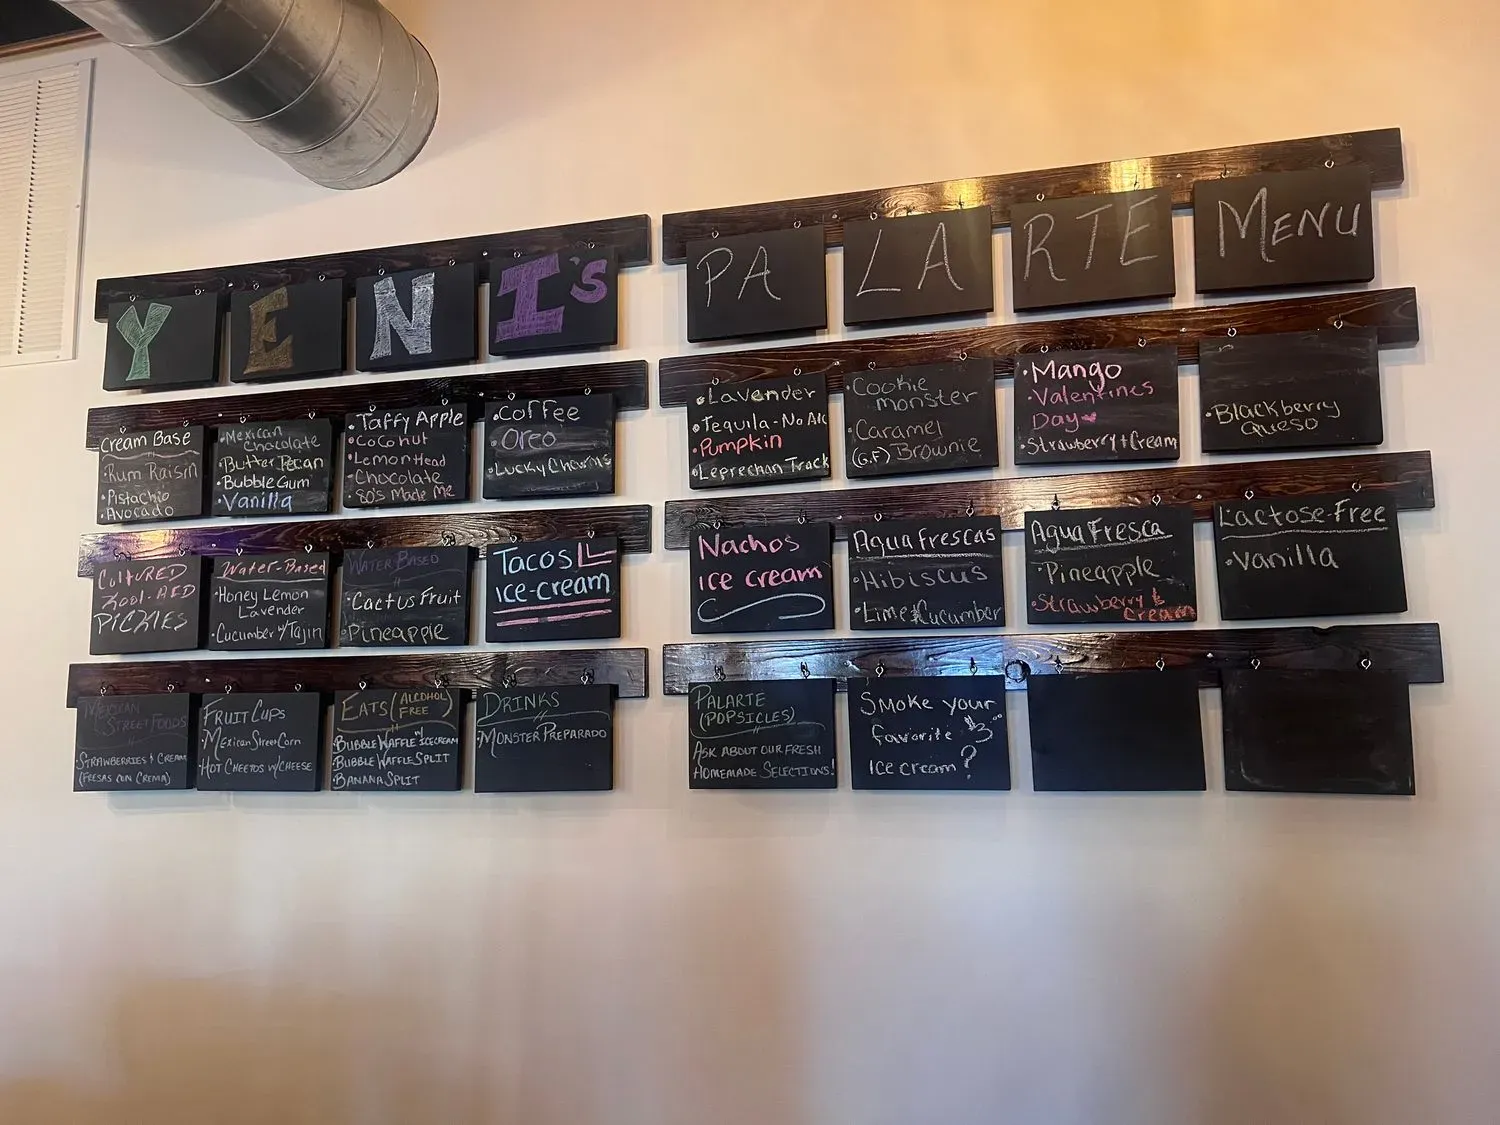 YENI'S
PALARTE MENU
Cream Base
• Rum Raisin
• Pistachio
• Avocado
• Mexican
Chocolate
• Butter Pecan
• Bubble Gum
• Vanilla
• Taffy Apple
• Coconut
• LemonHead
• Chocolate
• 80's Made Me
• Coffee
• Oreo
• Lucky Charms
• Lavender
• Tequila-No Alc
• Pumpkin
• Leprechan Track
• Cookie
monster
• Caramel
(G.F) Brownie
• Mango
• Valentines
Day
• Strawberry + Cream
• Blackberry
Queso
CULTURED
KOOL-AED
PICKLES
Water-Based
• Honey Lemon
Lavender
• Cucumber w/ Tajin
WATER BASED
• Cactus Fruit
• Pineapple
Tacos
ice-cream
Nachos
ice cream
Agua frescas
• Hibiscus
• Lime & Cucumber
Agua Fresca
• Pineapple
• Strawberry &
Cream
Lactose-Free
• Vanilla
MEXICAN
STREET FOODS
• STRAWBERRIES & CREAM
(FRESAS CON CREMA)
FRUIT CUPS
• MEXICAN STREET CORN
• HOT CHEETOS W/CHEESE
EATS (ALCOHOL
FREE)
• BUBBLE WAFFLE W/ ICE CREAM
• BUBBLE WAFFLE SPLIT
• BANANA SPLIT
DRINKS
• MONSTER PREPARADO
PALARTE
(POPSICLES)
ASK ABOUT OUR FRESH
HOMEMADE SELECTIONS!
Smoke your
favorite
Ice cream?